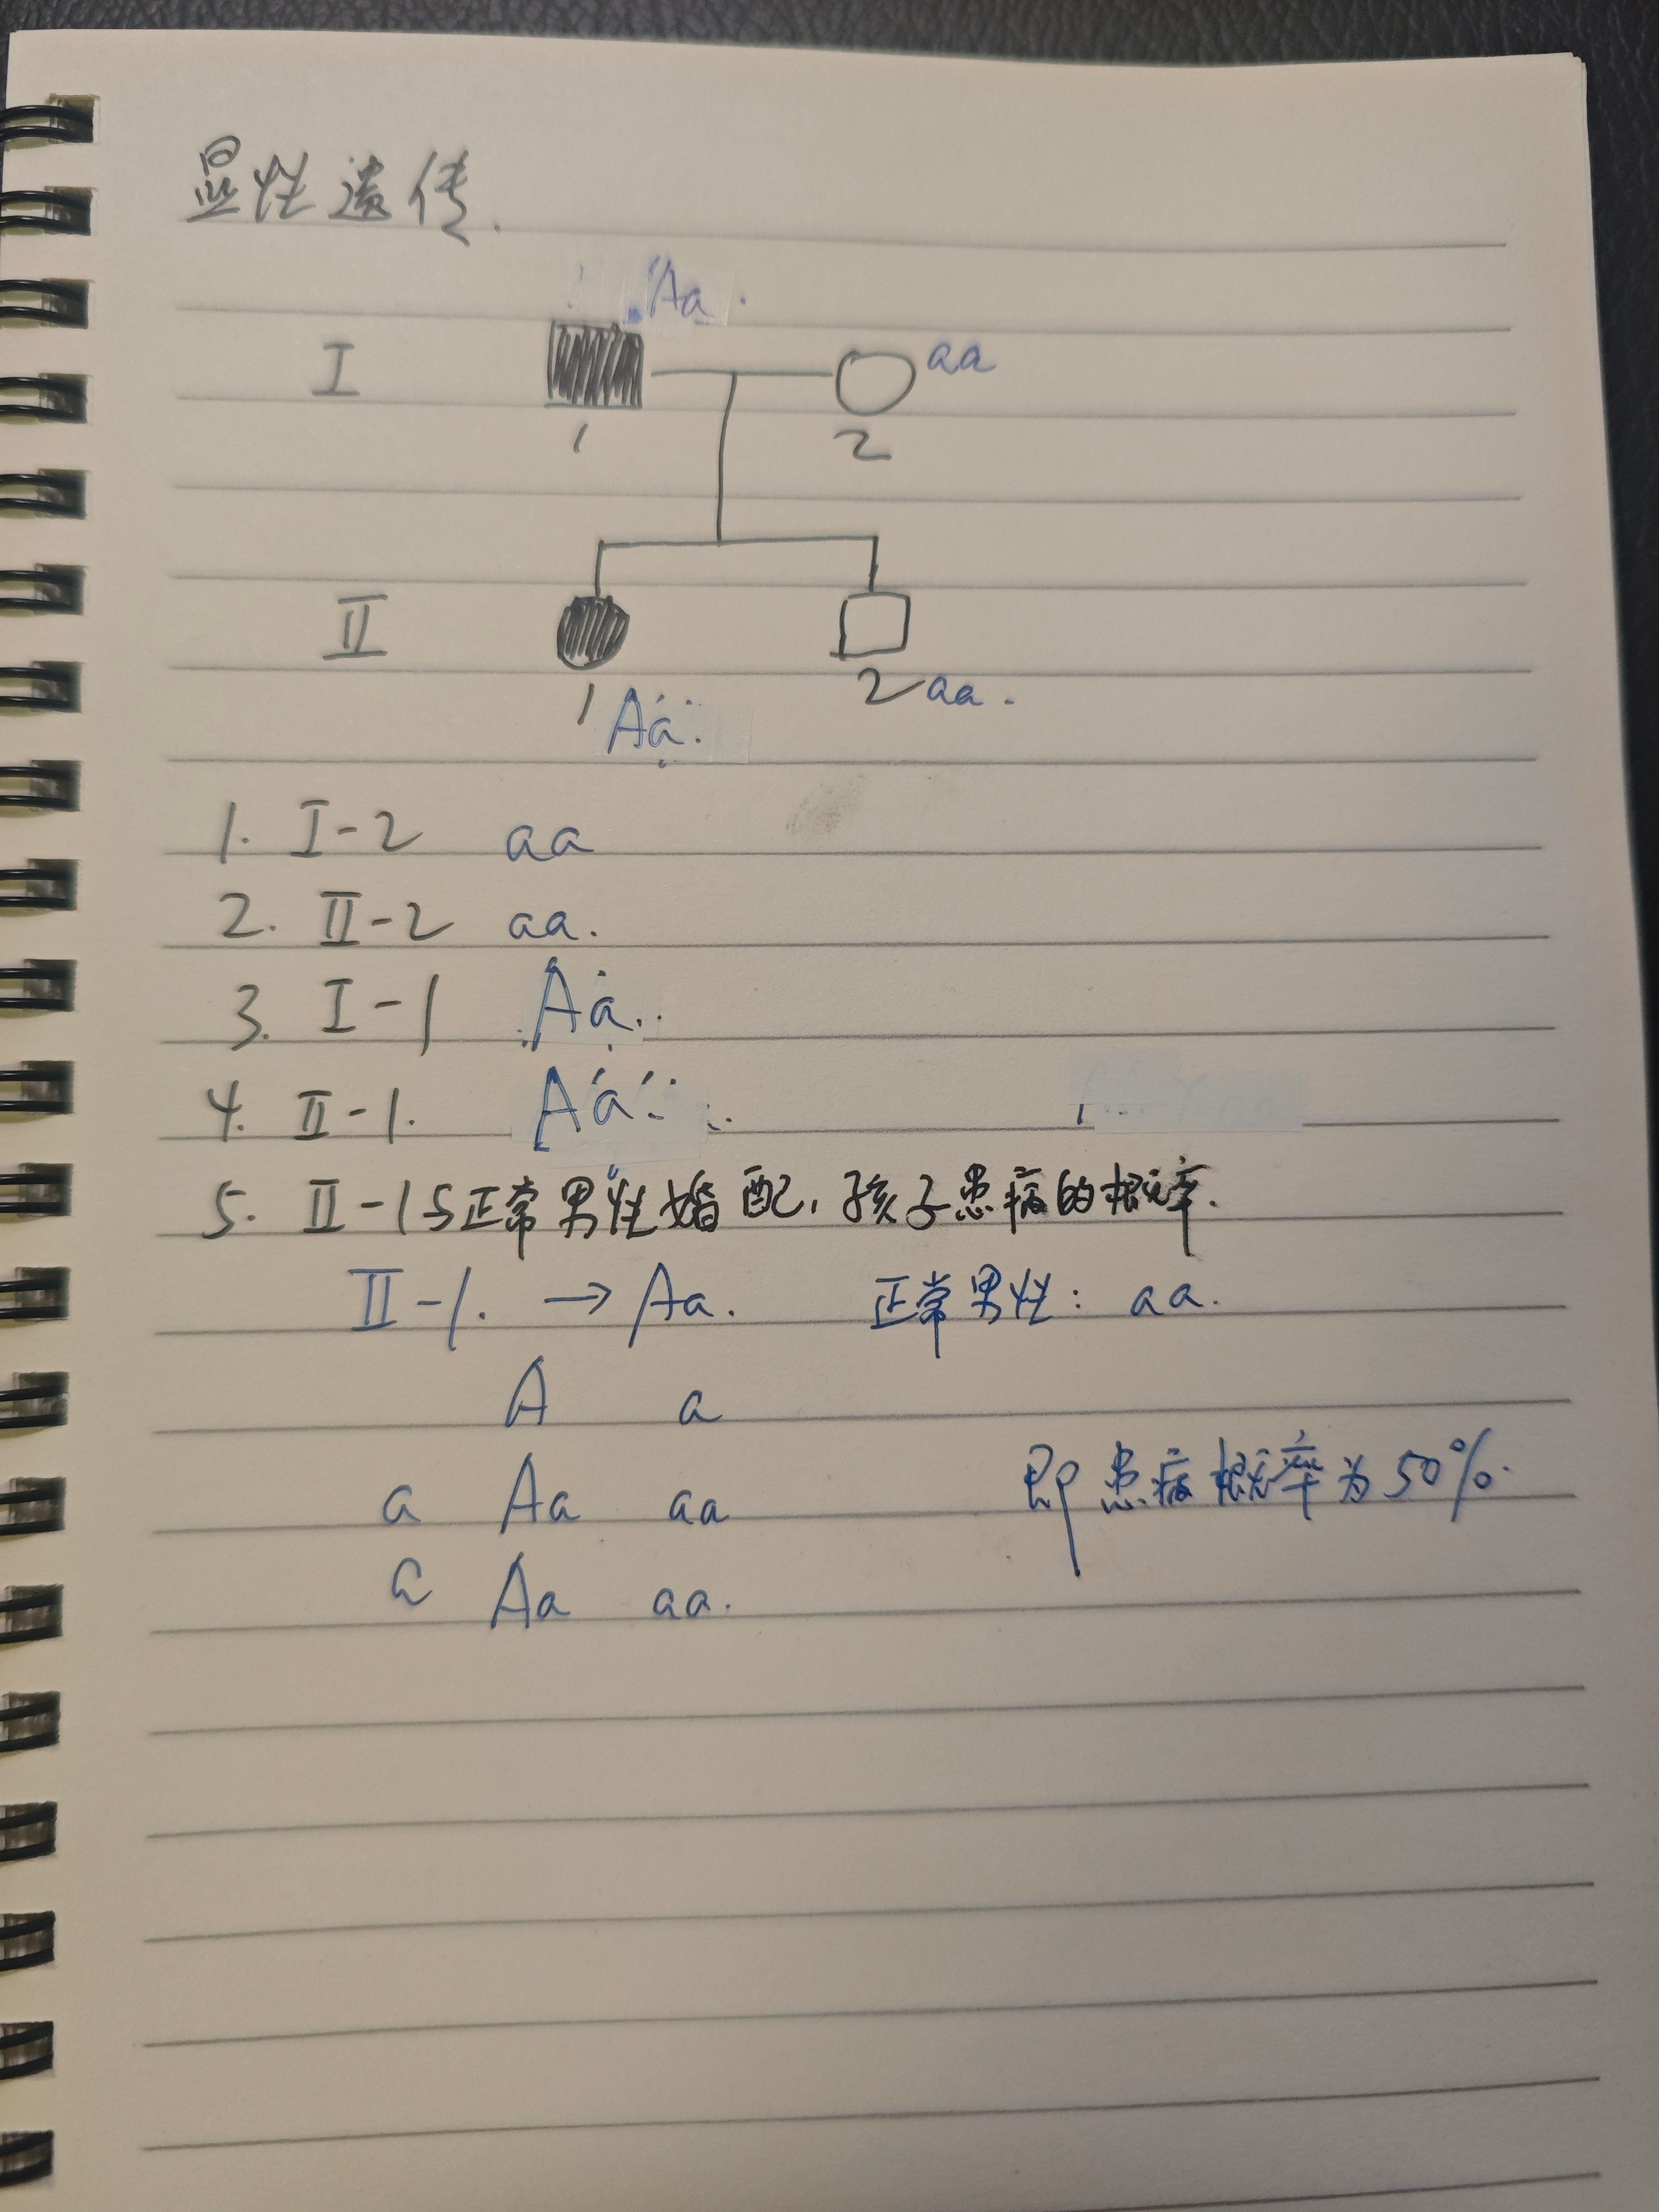 显性遗传.
Aa.
I aa
1 2
II
1 Aa. 2 aa.
1. I-2 aa
2. II-2 aa.
3. I-1 Aa.
4. II-1. Aa
5. II-1与正常男性婚配,孩子患病的概率.
II-1. → Aa. 正常男性: aa.
A a
a Aa aa 即患病概率为50%.
a Aa aa.